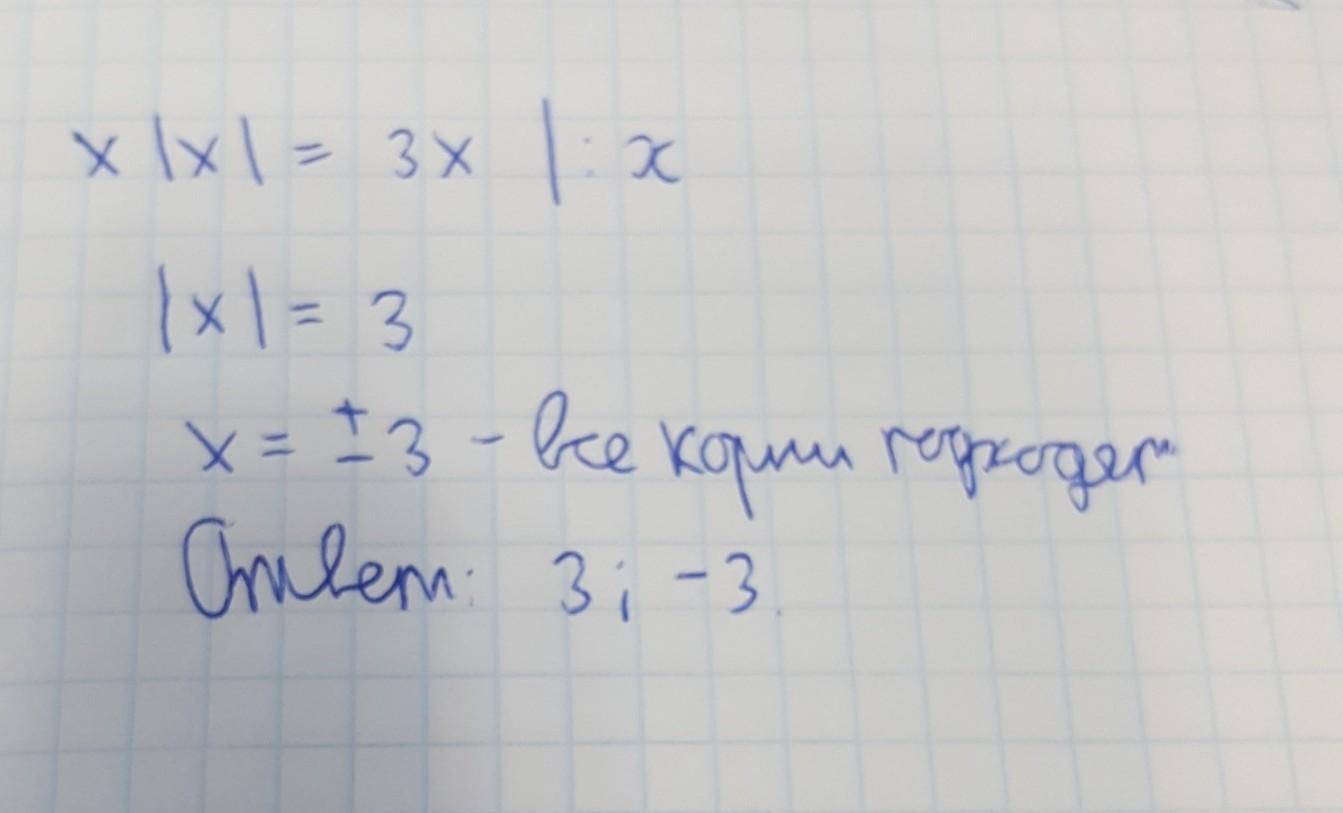 x |x| = 3x | : x
|x| = 3
x = ± 3 - все корни подходят
Ответ: 3; -3.